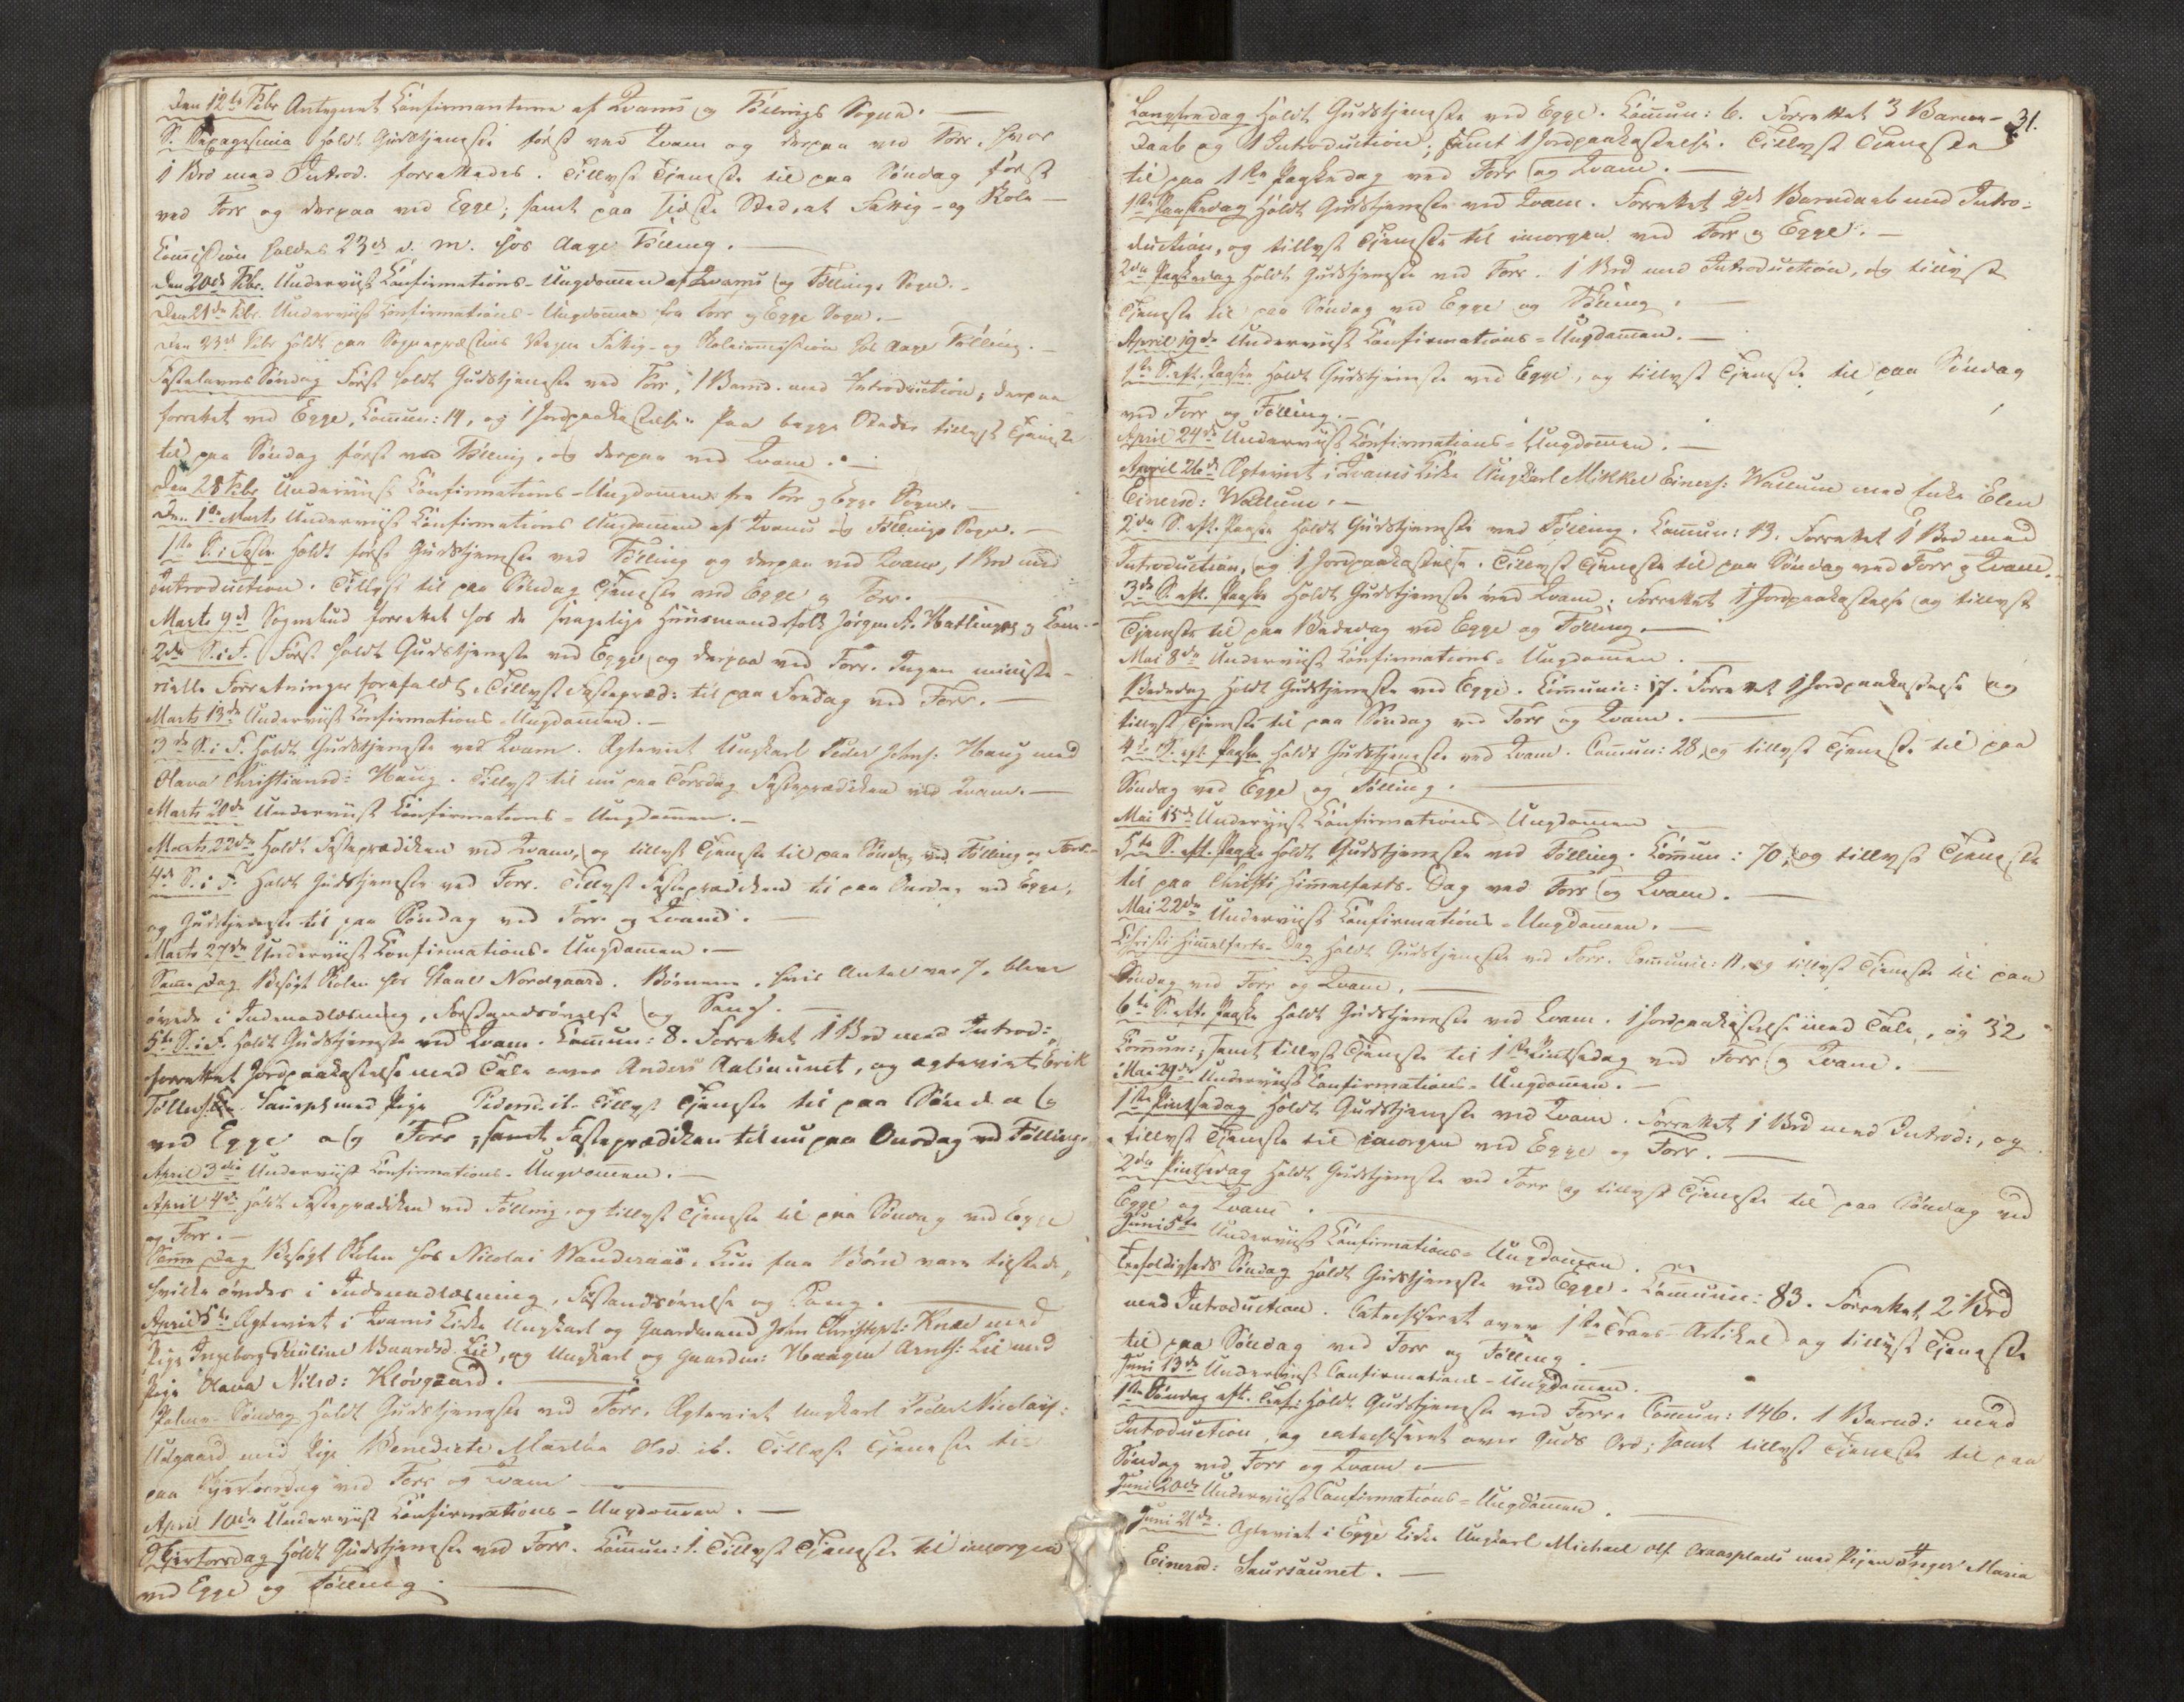 Den 12te Febr Antegnet Konfirmanterne af Qvams og Föllings Sogne. —
S. Sexagesima Holdt Gudstjeneste først ved Qvam og derpaa ved For, hvor
1 Brd med Introd. forrettedes. Tillyst Tjeneste til paa Søndag først
ved Forr og derpaa ved Egge; samt paa sidste Sted, at Fattig- og Skole-
Kommission holdes 23de d. M. hos Aage Fölling. —
Den 20de Febr. Underviist Konfirmations-Ungdommen af Qvams og Föllings Sogn. –
Den 21de Febr. Underviist Konfirmations-Ungdommen fra Forr og Egge Sogn. –
Den 23de Febr Holdt paa Sognepræstens Vegne Fattig- og Skolecommission hos Aage Fölling. –
Fastelavns Søndag Først holdt Gudstjeneste ved Forr, 1 Barnd. med Introduction; derpaa
forrettet ved Egge, Kommun: 14, og 1 Jordpaakastelse. Paa begge Steder tillyst Tjeneste
til paa Søndag først ved Fölling, og derpaa ved Qvam. –
Den 28 Febr Underviist Konfirmations-Ungdommen fra Forr og Egge Sogne. –
Den 1ste Marts Underviist Konfirmations Ungdommen af Qvams og Föllings Sogn. –
1ste S. i Faste Holdt først Gudstjeneste ved Fölling og derpaa ved Qvam, 1 Brd med
Introduction. Tillyst til paa Søndag Tjeneste ved Egge og Forr.
Marts 9de Sognebud forrettet hos de svagelige Huusmandsfolk Jørgen A. Hatlinges og Kone. –
2den S. i F. Først holdt Gudstjeneste ved Egge og derpaa ved Forr. Ingen ministe-
rielle Forretninger forefaldt. Tillyst Fastepræd: til paa Fredag ved Forr. —
Marts 13de Underviist Konfirmations-Ungdommen. –
3de S. i F. Holdt Gudstjeneste ved Qvam. Ægteviet Ungkarl Peder Johns: Haug med
Olava Christiansd: Haug. Tillyst til nu paa Torsdag Fasteprædiken ved Qvam. —
Marts 20de Underviist Konfirmations-Ungdommen. –
Marts 22de Holdt Fasteprædiken ved Qvam, og tillyst Tjeneste til paa Søndag ved Fölling og Forr. –
4de S. i F. Holdt Gudstjeneste ved Forr. Tillyst Fasteprædiken til paa Onsdag ved Egge,
og Gudstjeneste til paa Søndag ved Forr og Qvam. —
Marts 27de Underviist Konfirmations-Ungdommen. –
Samme Dag Besøgt Skolen hos Nordgaard. Børnene, hvis Antal var 7, bleve
øvede i Indenadlæsning, Forstandsøvelse og Sang. –
5te S. i F. Holdt Gudstjeneste ved Qvam. Kommun: 8. Forrettet 1 Brd med Introd:,
forrettet Jordpaakastelse med Tale over Anders Aalinunet, og ægteviet Erik
med Pige Pedersd. ib. Tillyst Tjeneste til paa Søndag
ved Egge og Forr, samt Fasteprædiken til nu paa Onsdag ved Fölling.
April 3die Underviist Konfirmations-Ungdommen. –
April 4de Holdt Fasteprædiken ved Fölling, og tillyst Tjeneste til paa Søndag ved Egge
og Forr. –
Samme Dag Besøgt Skolen hos Nicolai Wanderaas. Kun faa Børn vare tilstede,
hvilke øvedes i Indenadlæsning, Forstandsøvelse og Sang. —
April 5te Ægteviet i Qvams Kirke Ungkarl og Gaardmand John Christoph: med
Pige Ingeborg Pauline Baardsd. Lie, og Ungkarl og Gaardm: Haagen Arnts: Lie med
Pige Olava Nilsd: Klövgaard. —
Palme-Søndag Holdt Gudstjeneste ved Forr. Ægteviet Ungkarl Peder Nicolays:
Utgaard med Pige Benedicte Martha Olsd. ib. Tillyst Tjeneste til
paa Skjertorsdag ved Forr og Qvam —
April 10de Underviist Konfirmations-Ungdommen. –
Skjertorsdag Holdt Gudstjeneste ved Forr. Kommun: 1. Tillyst Tjeneste til imorgen
ved Egge og Fölling. —
31.
Langfredag Holdt Gudstjeneste ved Egge. Kommun: 6. Forrettet 3 Barne-
daab og 1 Introduction; samt 1 Jordpaakastelse. Tillyst Tjeneste
til paa 1ste Paaskedag ved Forr og Qvam. —
1ste Paaskedag Holdt Gudstjeneste ved Qvam. Forrettet 2de Barnedaab med Intro-
duction, og tillyst Tjeneste til imorgen ved Forr og Egge. –
2den Paaskedag Holdt Gudstjeneste ved Forr. 1 Brd med Introduction, og tillyst
Tjeneste til paa Søndag ved Egge og Fölling. —
April 19de Underviist Konfirmations-Ungdommen. –
1ste S. eft. Paaske Holdt Gudstjeneste ved Egge, og tillyst Tjeneste til paa Søndag
ved Forr og Fölling. –
April 24de Underviist Konfirmations-Ungdommen. –
April 26de Ægteviet i Qvams Kirke Ungkarl Mikkel Einers: Wallum med Enke Elen
Einersd: Wallum. –
2den S. eft. Paaske Holdt Gudstjeneste ved Fölling. Kommun: 13. Forrettet 1 Brd med
Introduction, og 1 Jordpaakastelse. Tillyst Tjeneste til paa Søndag ved Forr og Qvam. –
3die S. eft. Paaske Holdt Gudstjeneste ved Qvam. Forrettet 1 Jordpaakastelse og tillyst
Tjeneste til paa Bededag ved Egge og Fölling. —
Mai 8de Underviist Konfirmations-Ungdommen. —
Bededag Holdt Gudstjeneste ved Egge. Kommunic: 17. Forrettet 1 Jordpaakastelse og
tillyst Tjeneste til paa Søndag ved Forr og Qvam. —
4de S. eft. Paaske Holdt Gudstjeneste ved Qvam. Commun: 28, og tillyst Tjeneste til paa
Søndag ved Egge og Fölling. —
Mai 15de Underviist Konfirmations-Ungdommen —
5te S. eft. Paaske Holdt Gudstjeneste ved Fölling. Kommun: 70, og tillyst Tjeneste
til paa Christi Himmelfarts-Dag ved Forr og Qvam. —
Mai 22de Underviist Konfirmations-Ungdommen. –
Christi Himmelfarts-Dag Holdt Gudstjeneste ved Forr. Communic: 11, og tillyst Tjeneste til paa
Søndag ved Forr og Qvam. —
6te S. eft. Paaske Holdt Gudstjeneste ved Qvam. 1 Jordpaakastelse med Tale, og 32
Kommun:, samt tillyst Tjeneste til 1ste Pintsedag ved Forr og Qvam. —
Mai 29de Underviist Konfirmations-Ungdommen. –
1ste Pintsedag Holdt Gudstjeneste ved Qvam. Forrettet 1 Brd med Introd:, og
tillyst Tjeneste til imorgen ved Egge og Forr. —
2den Pintsedag Holdt Gudstjeneste ved Forr og tillyst Tjeneste til paa Søndag ved
Egge og Qvam. —
Juni 5te Underviist Konfirmations-Ungdommen. —
Trefoldigheds Søndag Holdt Gudstjeneste ved Egge. Kommunic: 83. Forrettet 2 Brd
med Introduction. Catechiseret over 1ste Troes-Artikel og tillyst Tjeneste
til paa Søndag ved Forr og Fölling.
Juni 13de Underviist Confirmations-Ungdommen. –
1ste Søndag eft. Tref: Holdt Gudstjeneste ved Forr. Commun: 146. 1 Barnd: med
Introduction, og catechiseret over Guds Ord; samt tillyst Tjeneste til paa
Søndag ved Forr og Qvam. –
Juni 20de Underviist Confirmations-Ungdommen. —
Juni 21de. Ægteviet i Egge Kirke Ungkarl Michael Ols. med Pigen Inger Maria
Einersd: Saursaunet. –